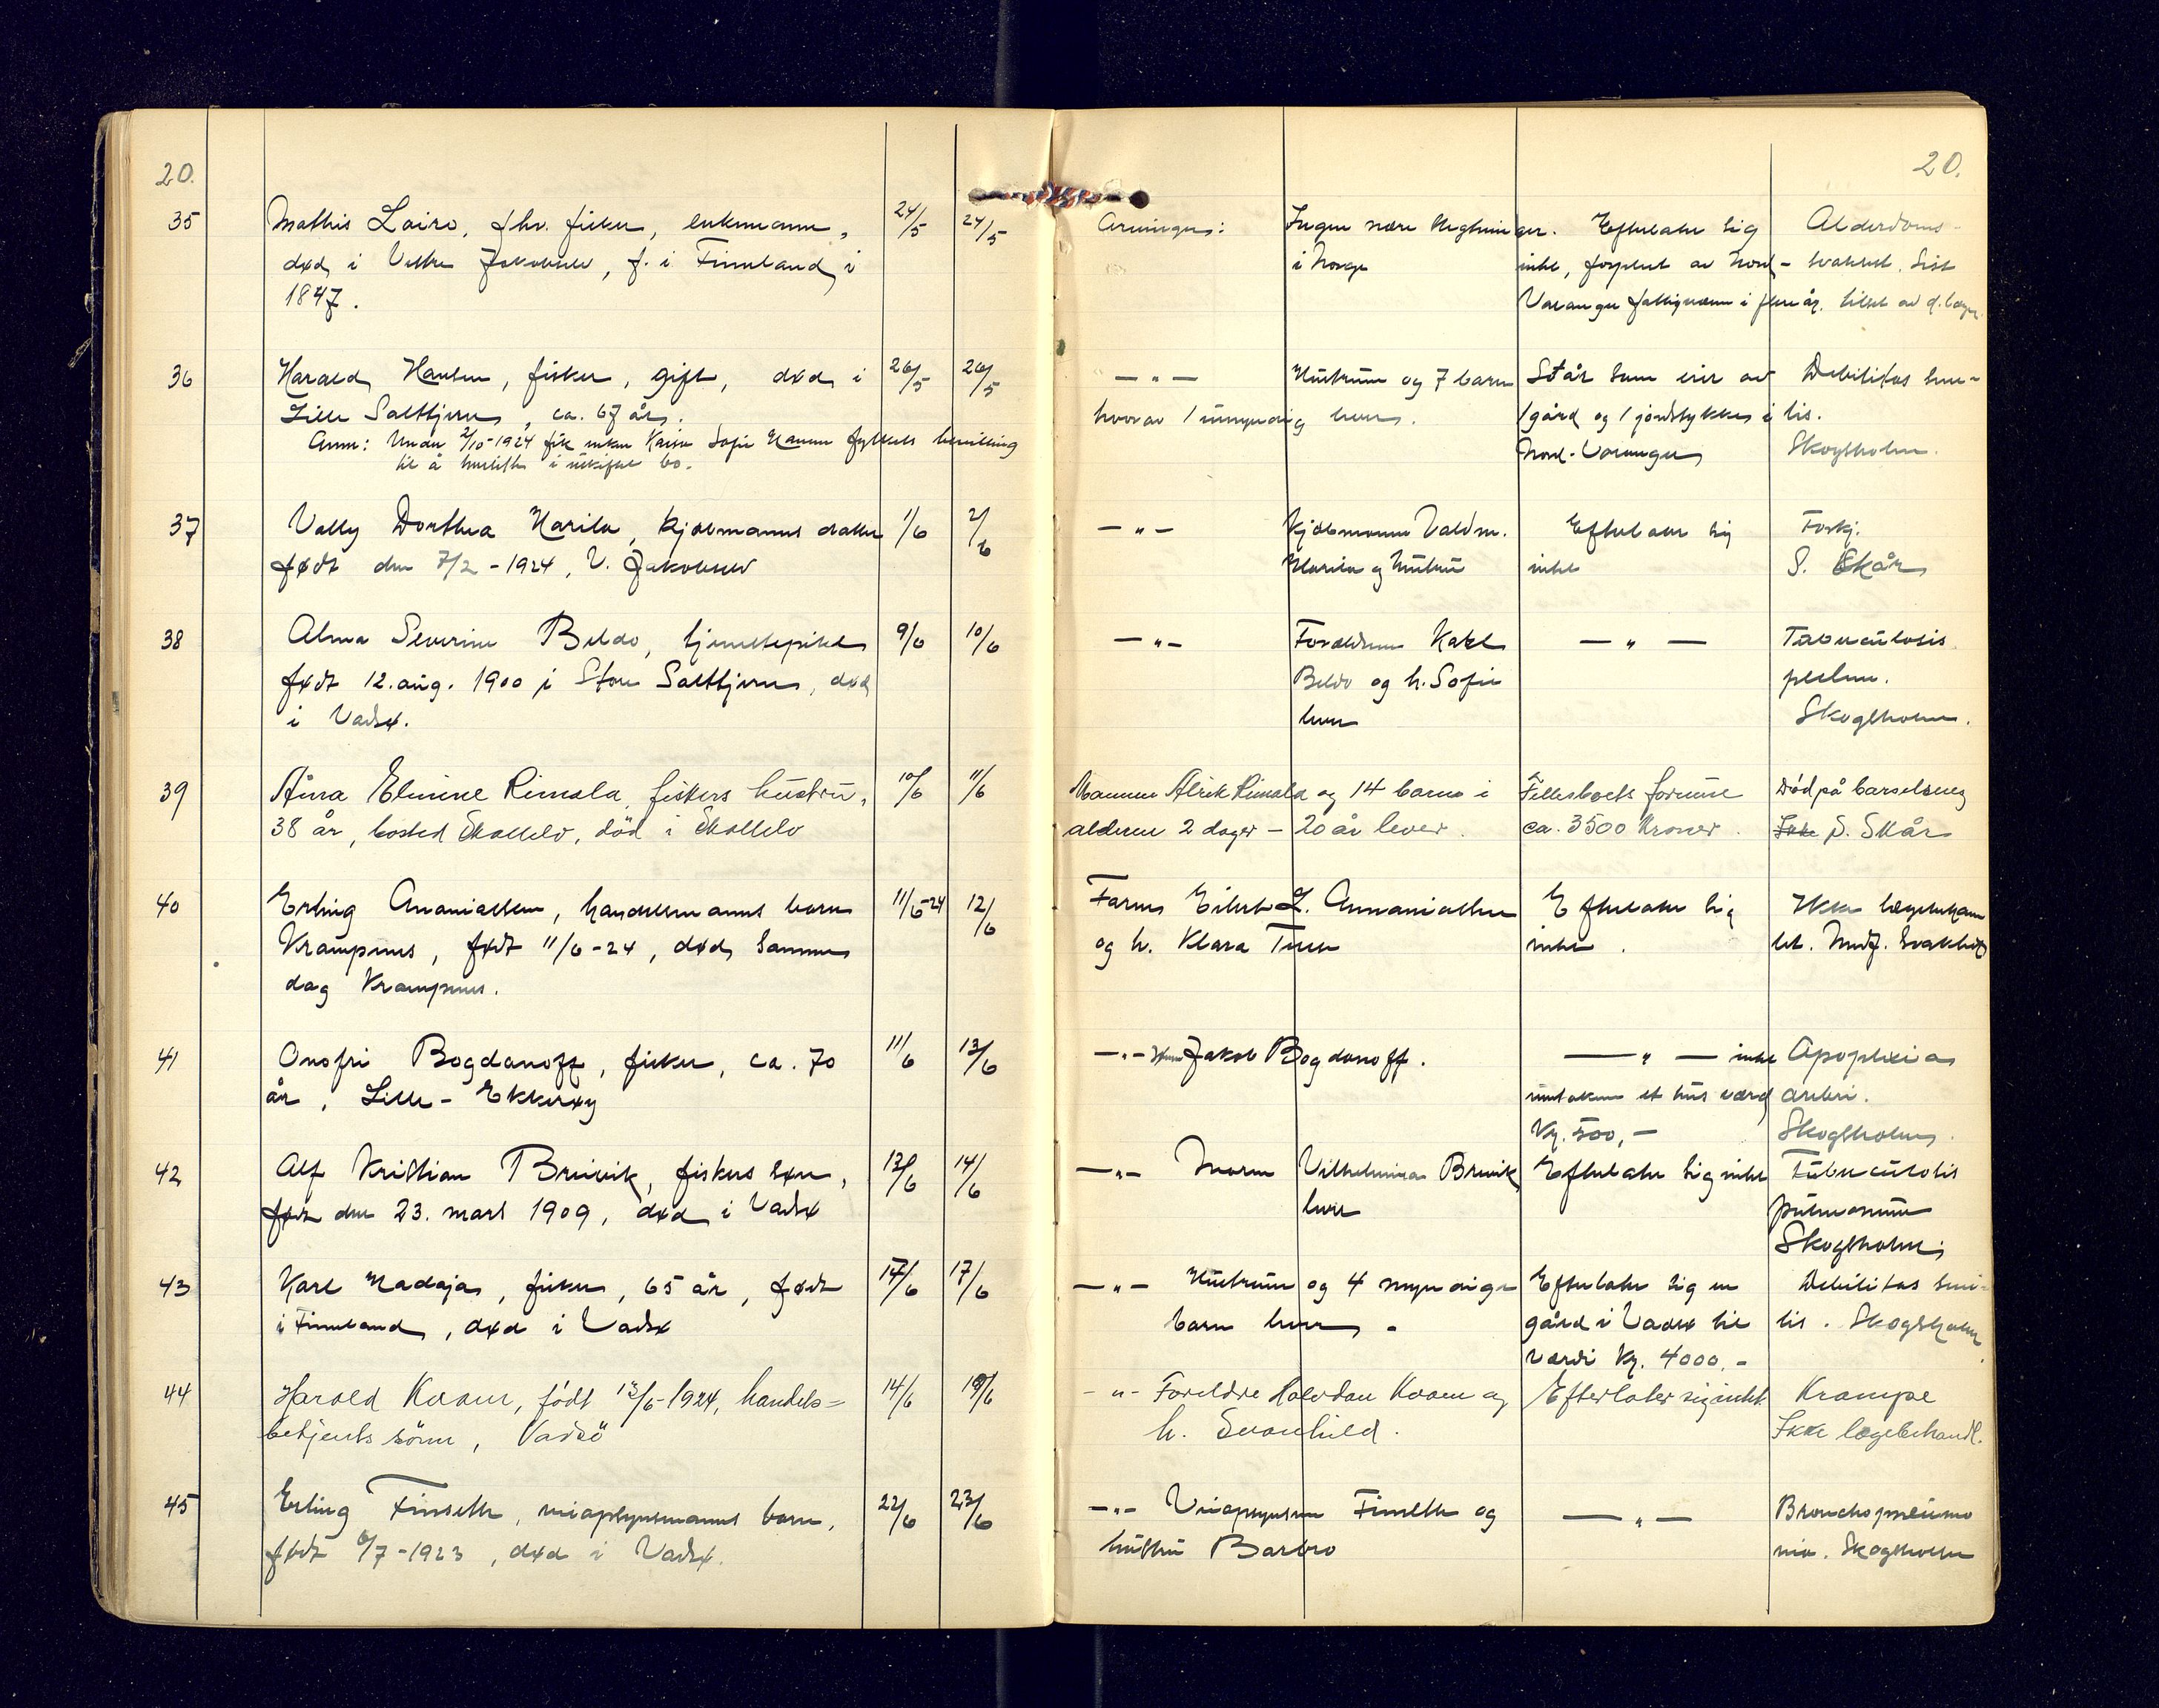 20.
20.
35
Mathis Lairo, fhv. fisker, enkemann,
død i Vestre Jakobselv, f. i Finnland i
1847.
24/5
24/5
Arvinger:
Ingen nære slegtninger.
i Norge
Efterlater sig
intet, forpleiet av Nord-
Varanger fattigvesen i flere år.
Alderdoms-
svakhet. Sist
tilset av d. læge
36
Harald Hansen, fisker, gift, død i
Lille Salttjern, ca. 67 år.
Anm: Under 2/10-1924 fik enken Karen Sofie Hansen fylkets bevilling
til å hensitte i uskiftet bo.
26/5
26/5
— " —
Hustruen og 7 barn
hvorav 1 umyndig lever.
Står som eier av
1 gård og 1 jordstykke i
Nord-Varanger
Debilitas seni-
lis.
Skogsholm.
37
Vally Dorthea Harila, kjøbmanns datter
født den 7/2-1924, V. Jakobselv
1/6
2/6
— " —
Kjøbmann Valdm.
Harila og hustru
Efterlater sig
intet
Forkj.
S. Skår
38
Alma Severine Beldo, tjenestepike
født 12. aug. 1900 i Store Salttjern, død
i Vadsø.
9/6
10/6
— " —
Forældrene Karl
Beldo og h. Sofie
lever
— " —
Tuberculosis
pulm.
Skogsholm.
39
Anna Elmine Rimala, fiskers hustru,
38 år, bosted Skallelv, död i Skallelv
10/6
11/6
Mannen Alrik Rimala og 14 barn i
alderen 2 dager - 20 år lever.
Fellesboets formue
ca. 3500 kroner.
Död på barselseng
S. Skår
40
Erling Ananiassen, handelsmanns barn
Krampenes, født 11/6-24, død samme
dag Krampenes.
11/6-24
12/6
Farens Eilert L. Annaniassen
og h. Klara
Efterlater sig
intet.
Ikke lægebehand
let. Medf. svakhet
41
Onofri Bogdanoff, fisker, ca. 70
år, Lille-Ekkerøy
11/6
13/6
— " — Jakob Bogdanoff.
— " — intet
undtaken et hus værd
kr. 500,-
Apoplexia
cerebri.
Skogsholm.
42
Alf Kristian Breivik, fiskers søn,
født den 23. mars 1909, død i Vadsø
13/6
14/6
— " — Moren Vilhelmina Breivik
lever
Efterlater sig intet
Tuberculosis
pulmonum
Skogsholm
43
Karl Madaja, fisker, 65 år, født
i Finnland, død i Vadsø
14/6
17/6
— " — Hustruen og 4 myndige
barn lever -
Efterlater sig en
gård i Vadsø til
værdi kr. 4000.-
Debilitas seni-
lis. Skogsholm
44
Harald Kvam, födt 13/6-1924, handels-
betjents sönn, Vadsö
14/6
19/6
- " - Foreldre Halvdan Kvam og
h. Svanhild.
Efterlater sig intet
Krampe
Ikke lægebehandl.
45
Erling Finseth, opsynsmanns barn,
født 6/7-1923, død i Vadsø.
22/6
23/6
— " — Finseth og
hustru Barbro
— " —
Bronchopneumo
nia. Skogsholm